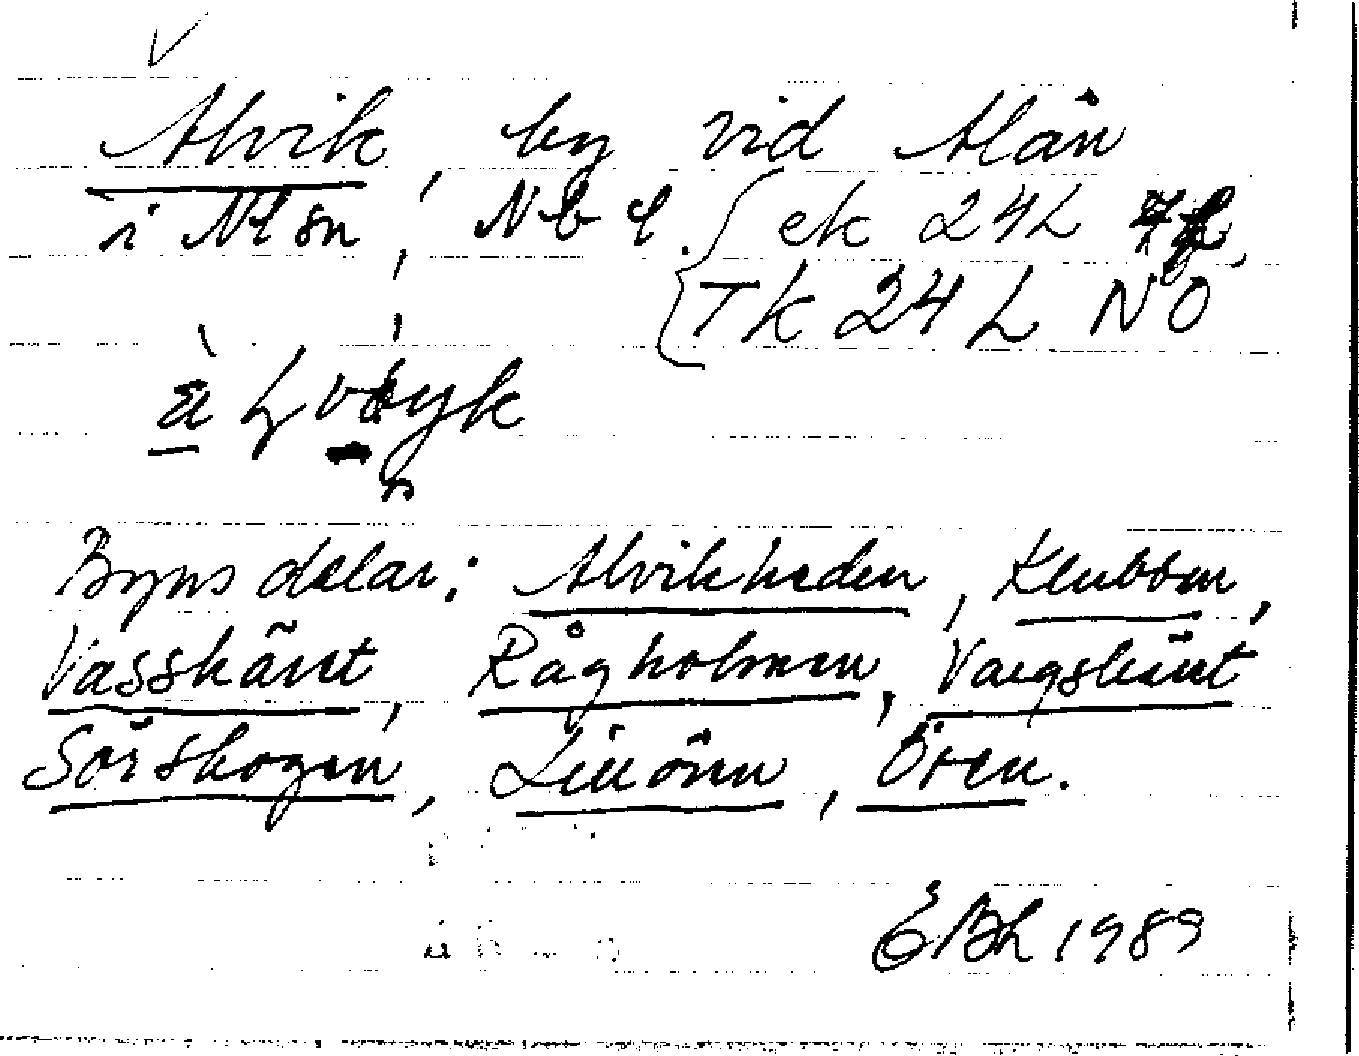 Alvik, by vid Alån
i Nl sn, Nbtl. ek 24L
Tk 24 L NO
Byns delar: Alvikheden, Klubben,
Vasskäret, Rågholmen, Vargskäret
Sörskogen, Lillörn, Ören.
EBL 1989